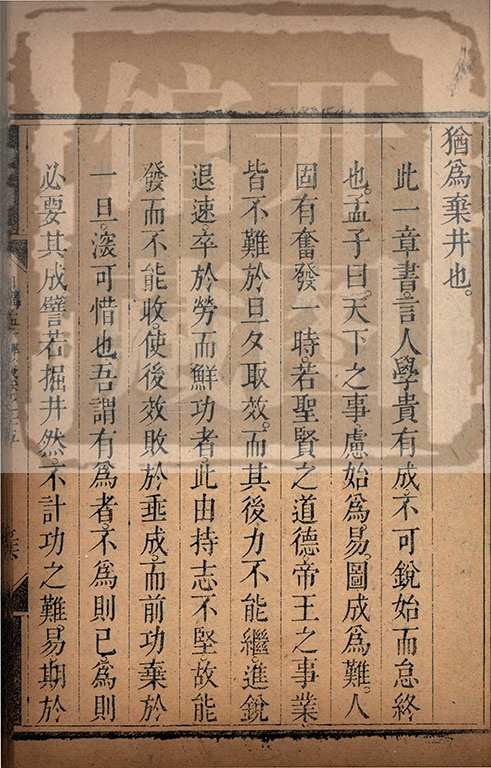 猶為棄井也。
此一章書。言人學貴有成。不可銳始而怠終
也。孟子曰。天下之事。慮始為易。圖成為難。人
固有奮發一時。若聖賢之道德。帝王之事業。
皆不難於旦夕取效。而其後力不能繼。進銳
退速。卒於勞而鮮功者。此由持志不堅。故能
發而不能收。使後效敗於垂成。而前功棄於
一旦。深可惜也。吾謂有為者。不為則已。為則
必要其成。譬若掘井然。不計功之難易。期於